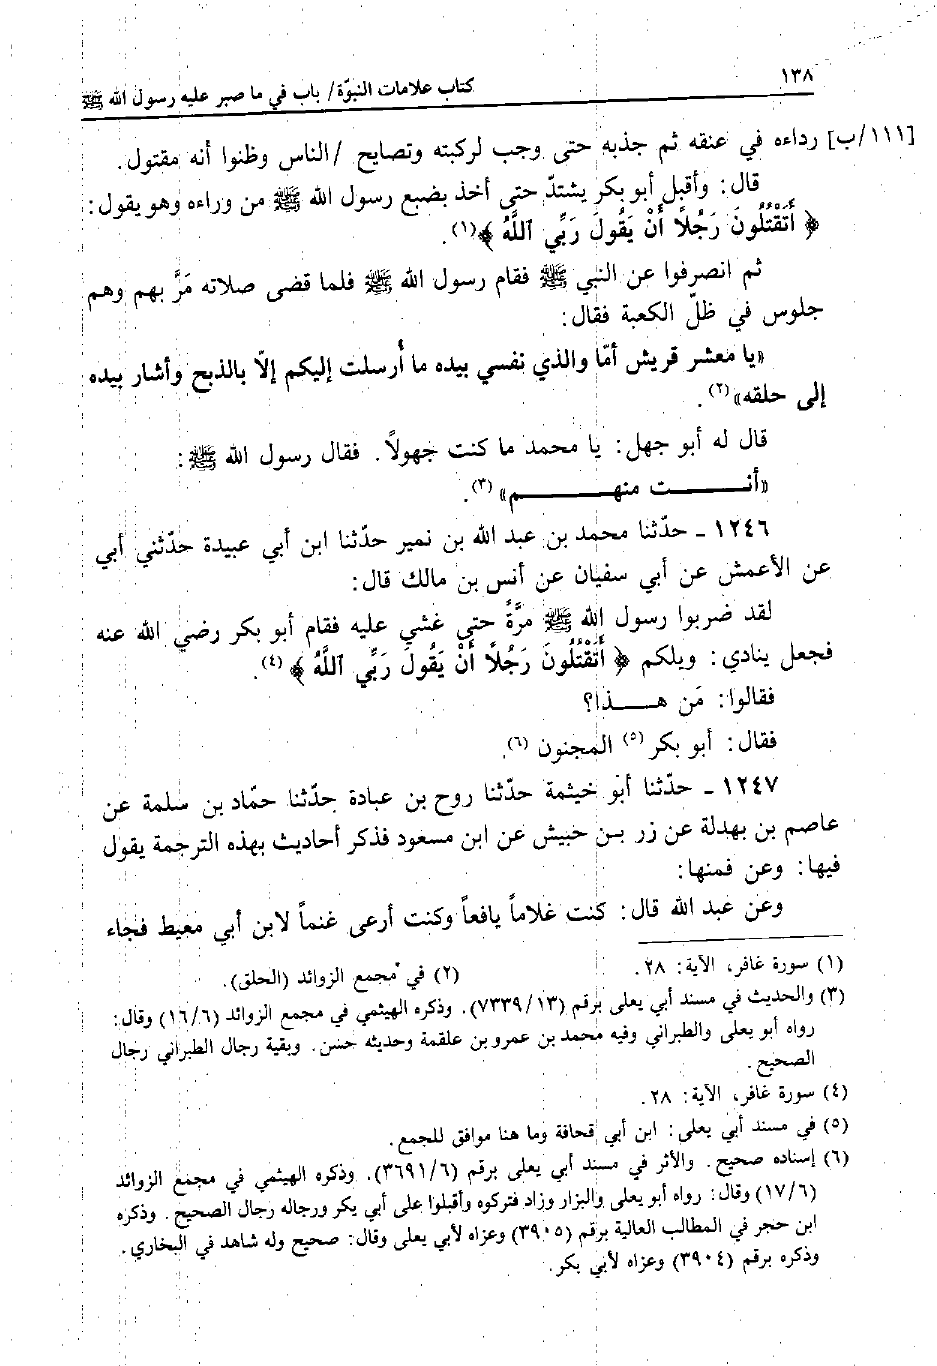 ١٣٨
كتاب علامات النبوّة/ باب في ما صبر عليه رسول الله ﷺ
[١١١/ب] رداءه في عنقه ثم جذبه حتى وجب لركبته وتصايح /الناس وظنوا أنه مقتول.
قال: وأقبل أبو بكر يشتدّ حتى أخذ بضبع رسول الله ﷺ من وراءه وهو يقول:
﴿ أَتَقْتُلُونَ رَجُلاً أَنْ يَقُولَ رَبِّي ٱللَّهُ ﴾(١).
ثم انصرفوا عن النبي ﷺ فقام رسول الله ﷺ فلما قضى صلاته مَرَّ بهم وهم
جلوس في ظلّ الكعبة فقال:
«يا معشر قريش أمّا والذي نفسي بيده ما أُرسلت إليكم إلاّ بالذبح وأشار بيده
إلى حلقه»(٢).
قال له أبو جهل: يا محمد ما كنت جهولاً. فقال رسول الله ﷺ:
«أنـــت منهـــم»(٣).
١٢٤٦ - حدّثنا محمد بن عبد الله بن نمير حدّثنا ابن أبي عبيدة حدّثني أبي
عن الأعمش عن أبي سفيان عن أنس بن مالك قال:
لقد ضربوا رسول الله ﷺ مرَّةً حتى غشي عليه فقام أبو بكر رضي الله عنه
فجعل ينادي: ويلكم ﴿ أَتَقْتُلُونَ رَجُلاً أَنْ يَقُولَ رَبِّي ٱللَّهُ ﴾(٤).
فقالوا: مَن هـــذا؟
فقال: أبو بكر(٥) المجنون(٦).
١٢٤٧ - حدّثنا أبو خيثمة حدّثنا روح بن عبادة حدّثنا حمّاد بن سلمة عن
عاصم بن بهدلة عن زر بن حبيش عن ابن مسعود فذكر أحاديث بهذه الترجمة يقول
فيها: وعن فمنها:
وعن عبد الله قال: كنت غلاماً يافعاً وكنت أرعى غنماً لابن أبي معيط فجاء
(١) سورة غافر، الآية: ٢٨. (٢) في مجمع الزوائد (الحلق).
(٣) والحديث في مسند أبي يعلى برقم (٧٣٣٩/١٣). وذكره الهيثمي في مجمع الزوائد (١٦/٦) وقال:
رواه أبو يعلى والطبراني وفيه محمد بن عمرو بن علقمة وحديثه حسن. وبقية رجال الطبراني رجال
الصحيح.
(٤) سورة غافر، الآية: ٢٨.
(٥) في مسند أبي يعلى: ابن أبي قحافة وما هنا موافق للجمع.
(٦) إسناده صحيح. والأثر في مسند أبي يعلى برقم (٣٦٩١/٦). وذكره الهيثمي في مجمع الزوائد
(١٧/٦) وقال: رواه أبو يعلى والبزار وزاد فتركوه وأقبلوا على أبي بكر ورجاله رجال الصحيح. وذكره
ابن حجر في المطالب العالية برقم (٣٩٠٥) وعزاه لأبي يعلى وقال: صحيح وله شاهد في البخاري.
وذكره برقم (٣٩٠٤) وعزاه لأبي بكر.